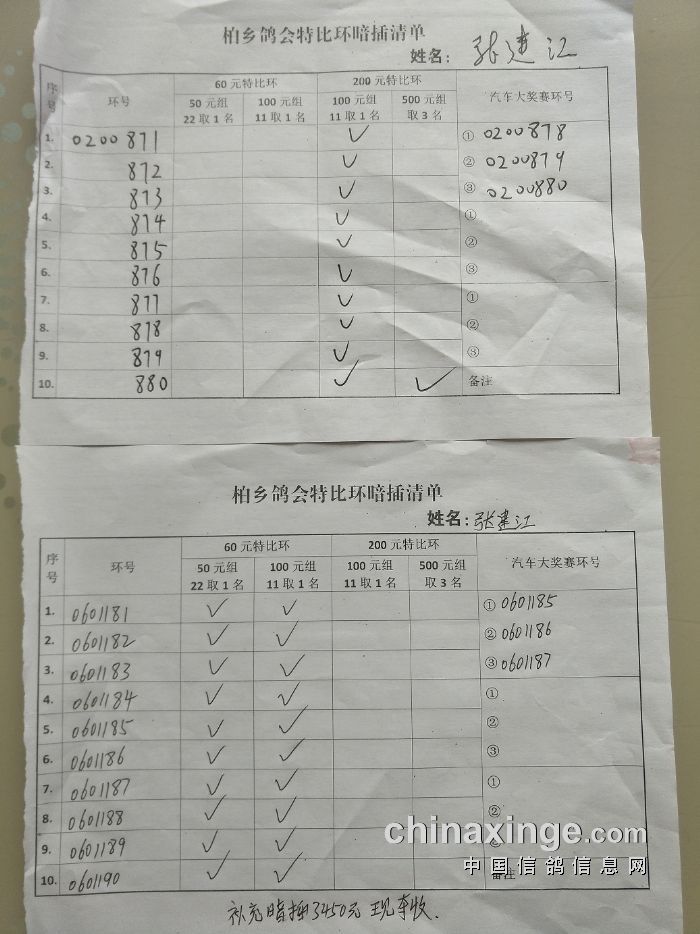 柏乡鸽会特比环暗插清单
姓名：张建江
序号 环号 60元特比环 200元特比环 汽车大奖赛环号
50元组 100元组 100元组 500元组
22取1名 11取1名 11取1名 取3名
1. 0200871 ✓ ① 0200878
2. 872 ✓ ② 0200879
3. 873 ✓ ③ 0200880
4. 874 ✓ ①
5. 875 ✓ ②
6. 876 ✓ ③
7. 877 ✓ ①
8. 878 ✓ ②
9. 879 ✓ ③
10. 880 ✓ ✓ 备注
柏乡鸽会特比环暗插清单
姓名：张建江
序号 环号 60元特比环 200元特比环 汽车大奖赛环号
50元组 100元组 100元组 500元组
22取1名 11取1名 11取1名 取3名
1. 0601181 ✓ ✓ ① 0601185
2. 0601182 ✓ ✓ ② 0601186
3. 0601183 ✓ ✓ ③ 0601187
4. 0601184 ✓ ✓ ①
5. 0601185 ✓ ✓ ②
6. 0601186 ✓ ✓ ③
7. 0601187 ✓ ✓ ①
8. 0601188 ✓ ✓ ②
9. 0601189 ✓ ✓
10. 0601190 ✓ ✓ 备注
chinaxinge.com
中国信鸽信息网
补充暗插3450元 现李收.